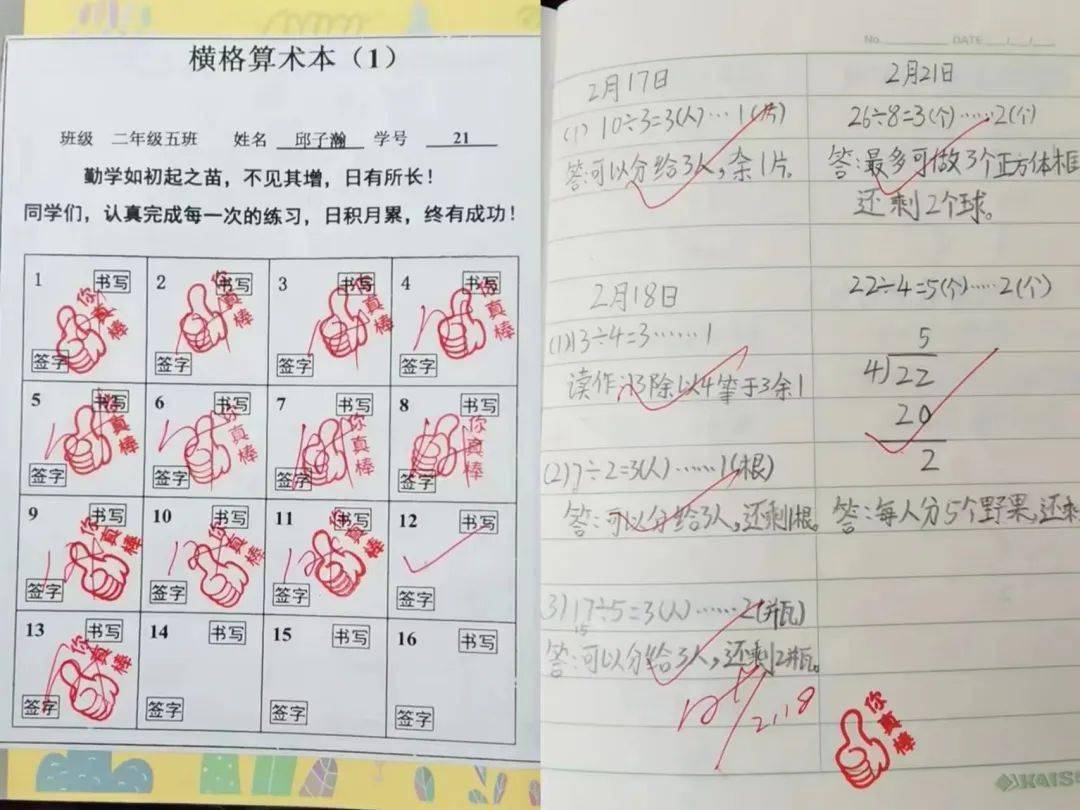 横格算术本（1）
班级 二年级五班 姓名 邱子瀚 学号 21
勤学如初起之苗，不见其增，日有所长！
同学们，认真完成每一次的练习，日积月累，终有成功！
1 书写 2 书写 3 书写 4 书写
你真棒 你真棒 你真棒 你真棒
签字 签字 签字 签字
5 书写 6 书写 7 书写 8 书写
你真棒 你真棒 你真棒 你真棒
签字 签字 签字 签字
9 书写 10 书写 11 书写 12 书写
你真棒 你真棒 你真棒
签字 签字 签字 签字
13 书写 14 书写 15 书写 16 书写
你真棒
签字 签字 签字 签字
No. DATE / /
2月17日
(1) 10÷3=3(人)…1(片)
答:可以分给3人,余1片。
2月18日
(1)13÷4=3……1
读作:13除以4等于3余1
(2)7÷2=3(人)……1(根)
答:可以分给3人,还剩1根。
(3)17÷5=3(人)……2(瓶)
15
答:可以分给3人,还剩2瓶。
2.18
2月21日
26÷8=3(个)……2(个)
答:最多可做3个正方体框
还剩2个球。
22÷4=5(个)……2(个)
5
4)22
20
2
答:每人分5个野果,还剩
你真棒